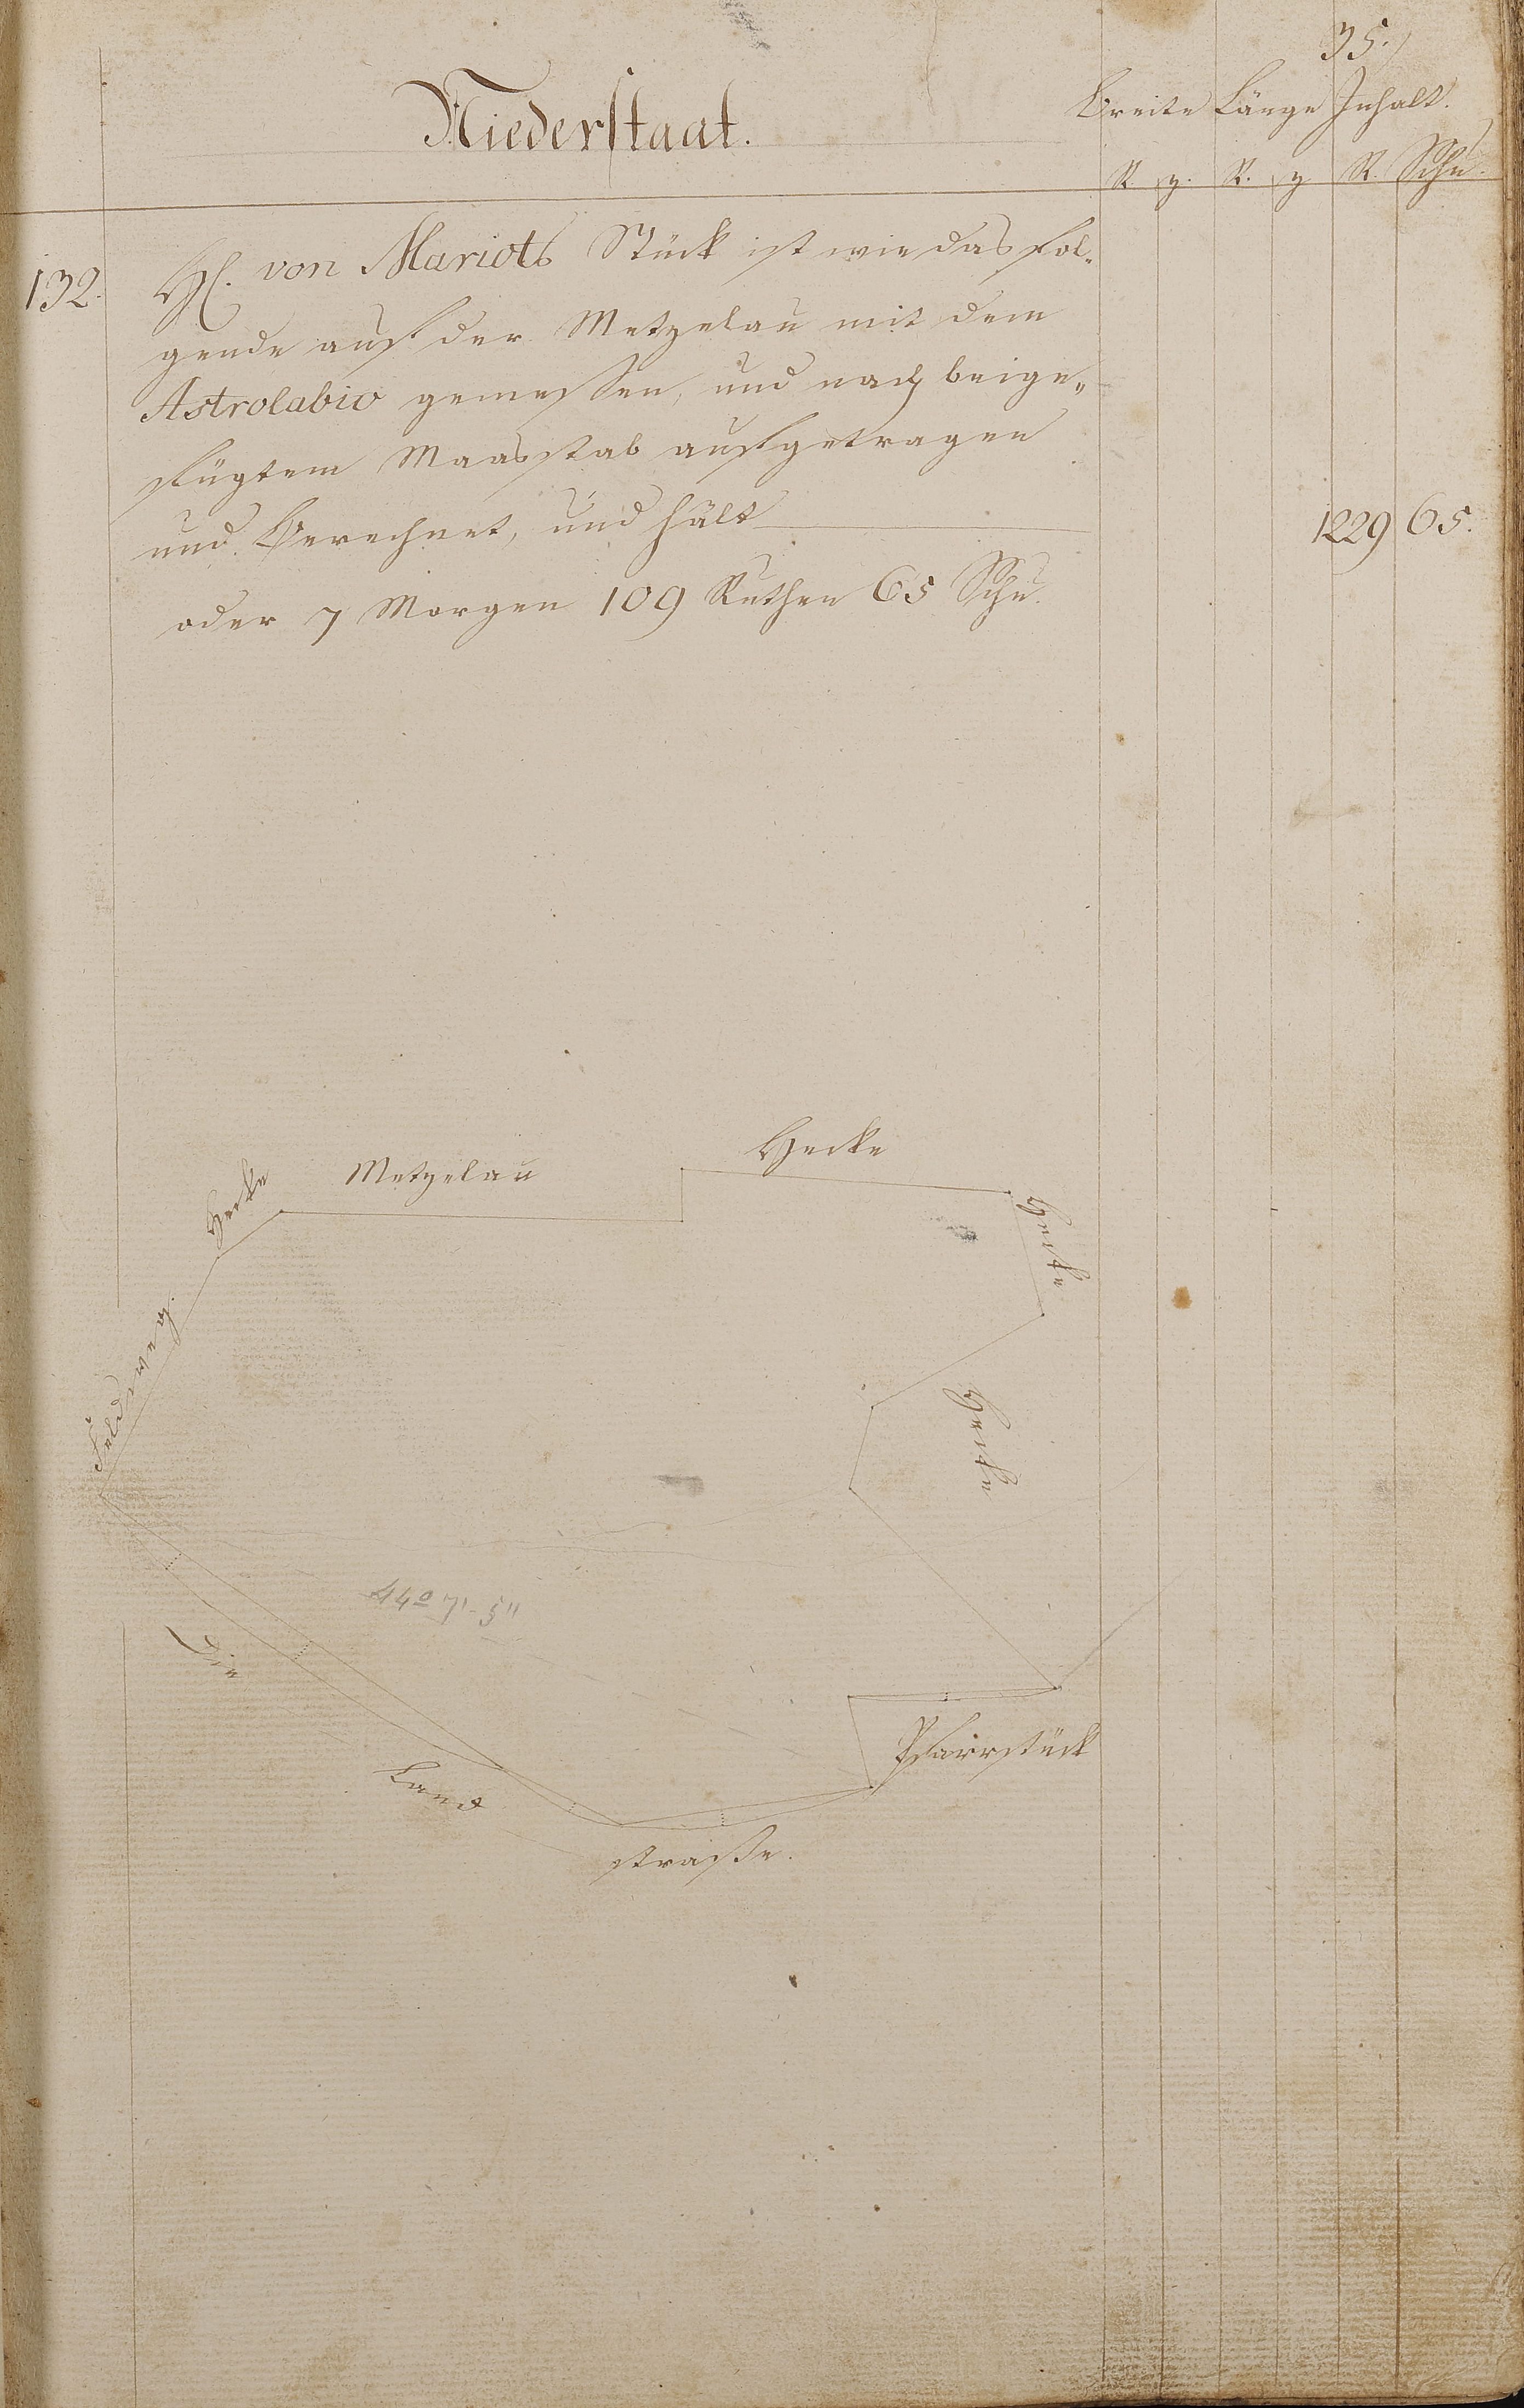 35.
Niederstaat.
Breite Länge Inhalt.
R. R. R. Schu.
132. H. von Mariots Stück ist wie das fol-
gende auf der Metzelau mit dem
Astrolabio gemessen, und nach beige-
fügtem Maasstab aufgetragen
und Berechnet, und hält 1229 65.
oder 7 Morgen 109 Ruthen 65 Schu.
Hecke
Metzelau
Hecke
Hecke
Feldweg.
Hecke
44° 7' 5"
Die
Pfarrstück
Land
strasse.